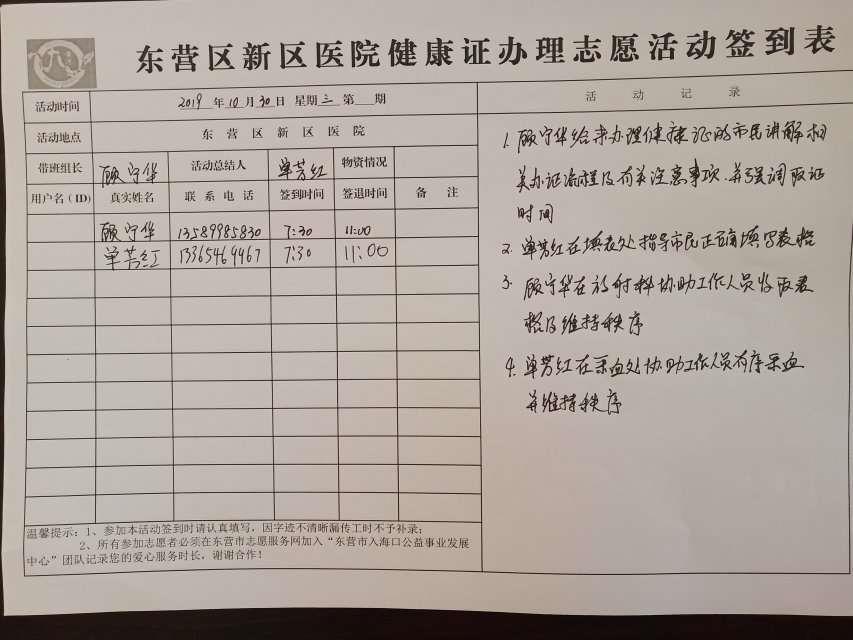 东营区新区医院健康证办理志愿活动签到表
活动时间 2019年10月30日 星期三 第 期
活动地点 东营区新区医院
带班组长 顾守华 活动总结人 单芳红 物资情况
用户名(ID) 真实姓名 联系电话 签到时间 签退时间 备注
顾守华 13589985830 7:30 11:00
单芳红 13365469467 7:30 11:00
温馨提示：1、参加本活动签到时请认真填写，因字迹不清晰漏传工时不予补录；
2、所有参加志愿者必须在东营市志愿服务网加入“东营市入海口公益事业发展
中心”团队记录您的爱心服务时长，谢谢合作！
活动记录
1. 顾守华给来办理健康证的市民讲解相
关办证流程及有关注意事项.并强调取证
时间
2. 单芳红在填表处指导市民正确填写表格
3. 顾守华在放射科协助工作人员收取表
格及维持秩序
4. 单芳红在采血处协助工作人员有序采血
并维持秩序